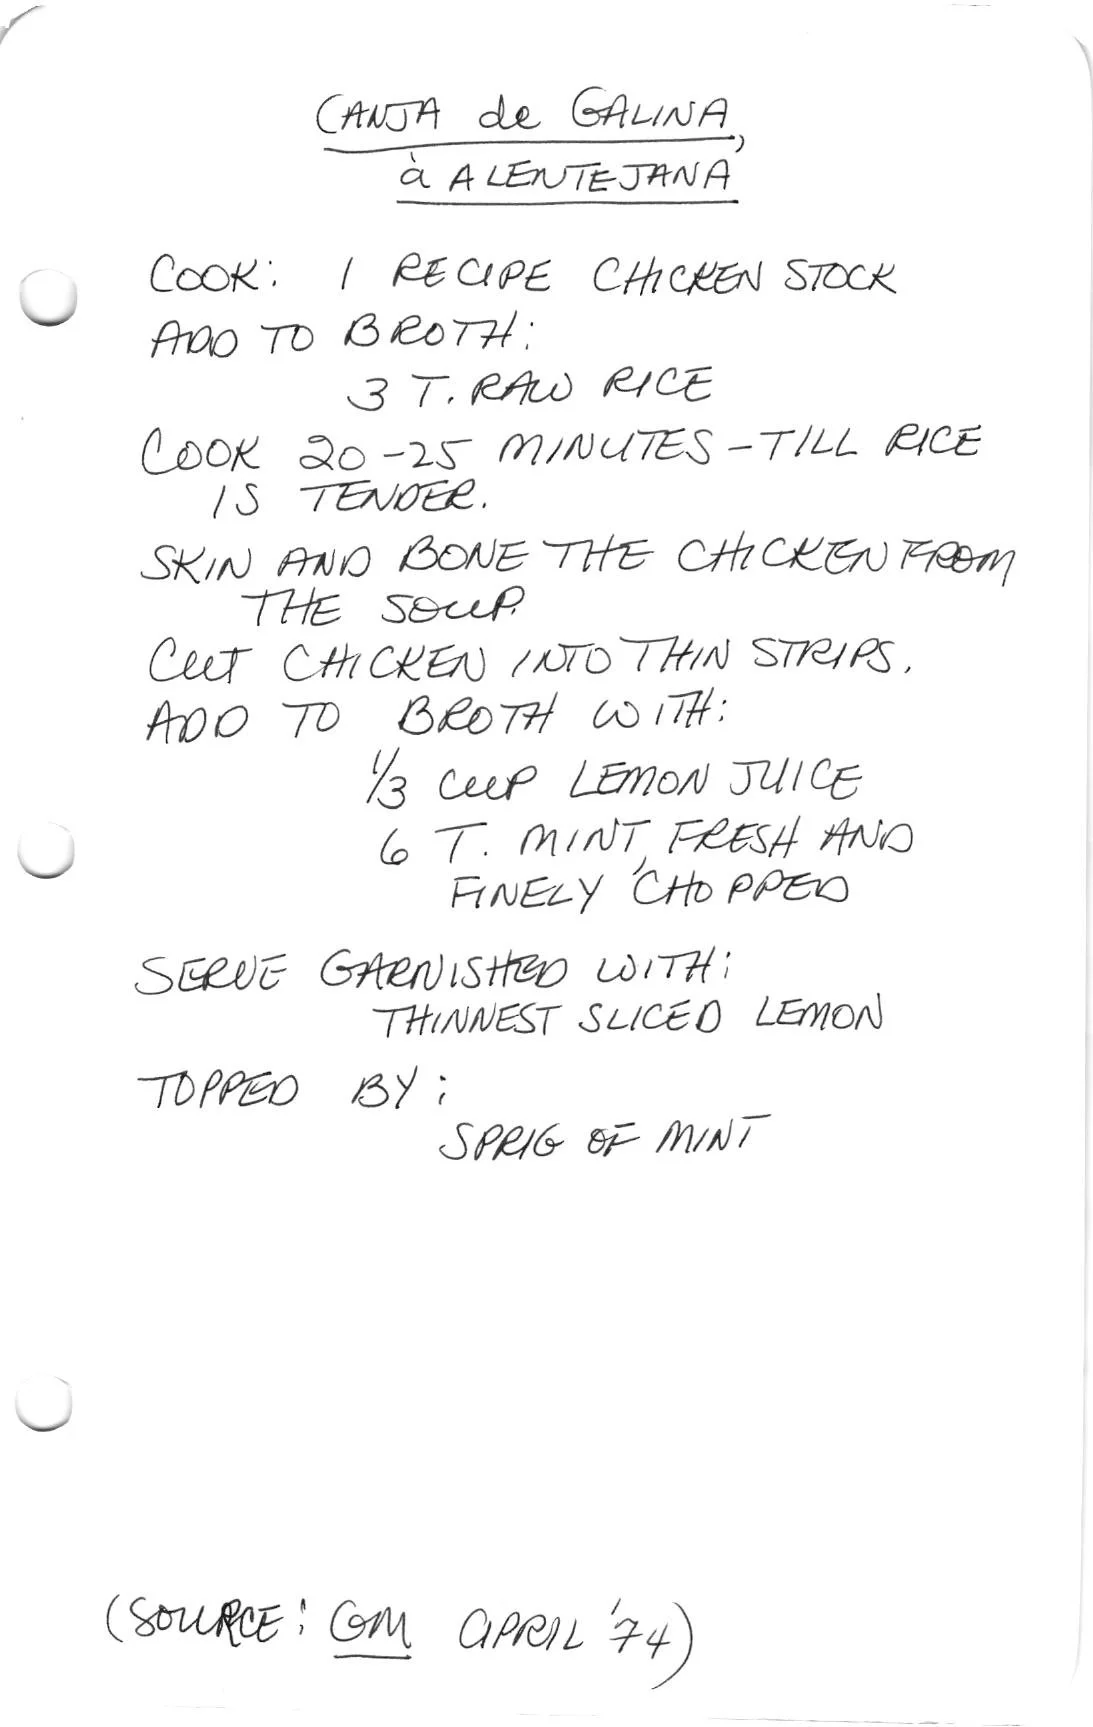 CANJA de GALINA,
à ALENTEJANA
COOK: 1 RECIPE CHICKEN STOCK
ADD TO BROTH:
3 T. RAW RICE
COOK 20-25 MINUTES - TILL RICE
IS TENDER.
SKIN AND BONE THE CHICKEN FROM
THE SOUP.
CUT CHICKEN INTO THIN STRIPS.
ADD TO BROTH WITH:
1/3 CUP LEMON JUICE
6 T. MINT, FRESH AND
FINELY CHOPPED
SERVE GARNISHED WITH:
THINNEST SLICED LEMON
TOPPED BY:
SPRIG OF MINT
(SOURCE: GM APRIL '74)